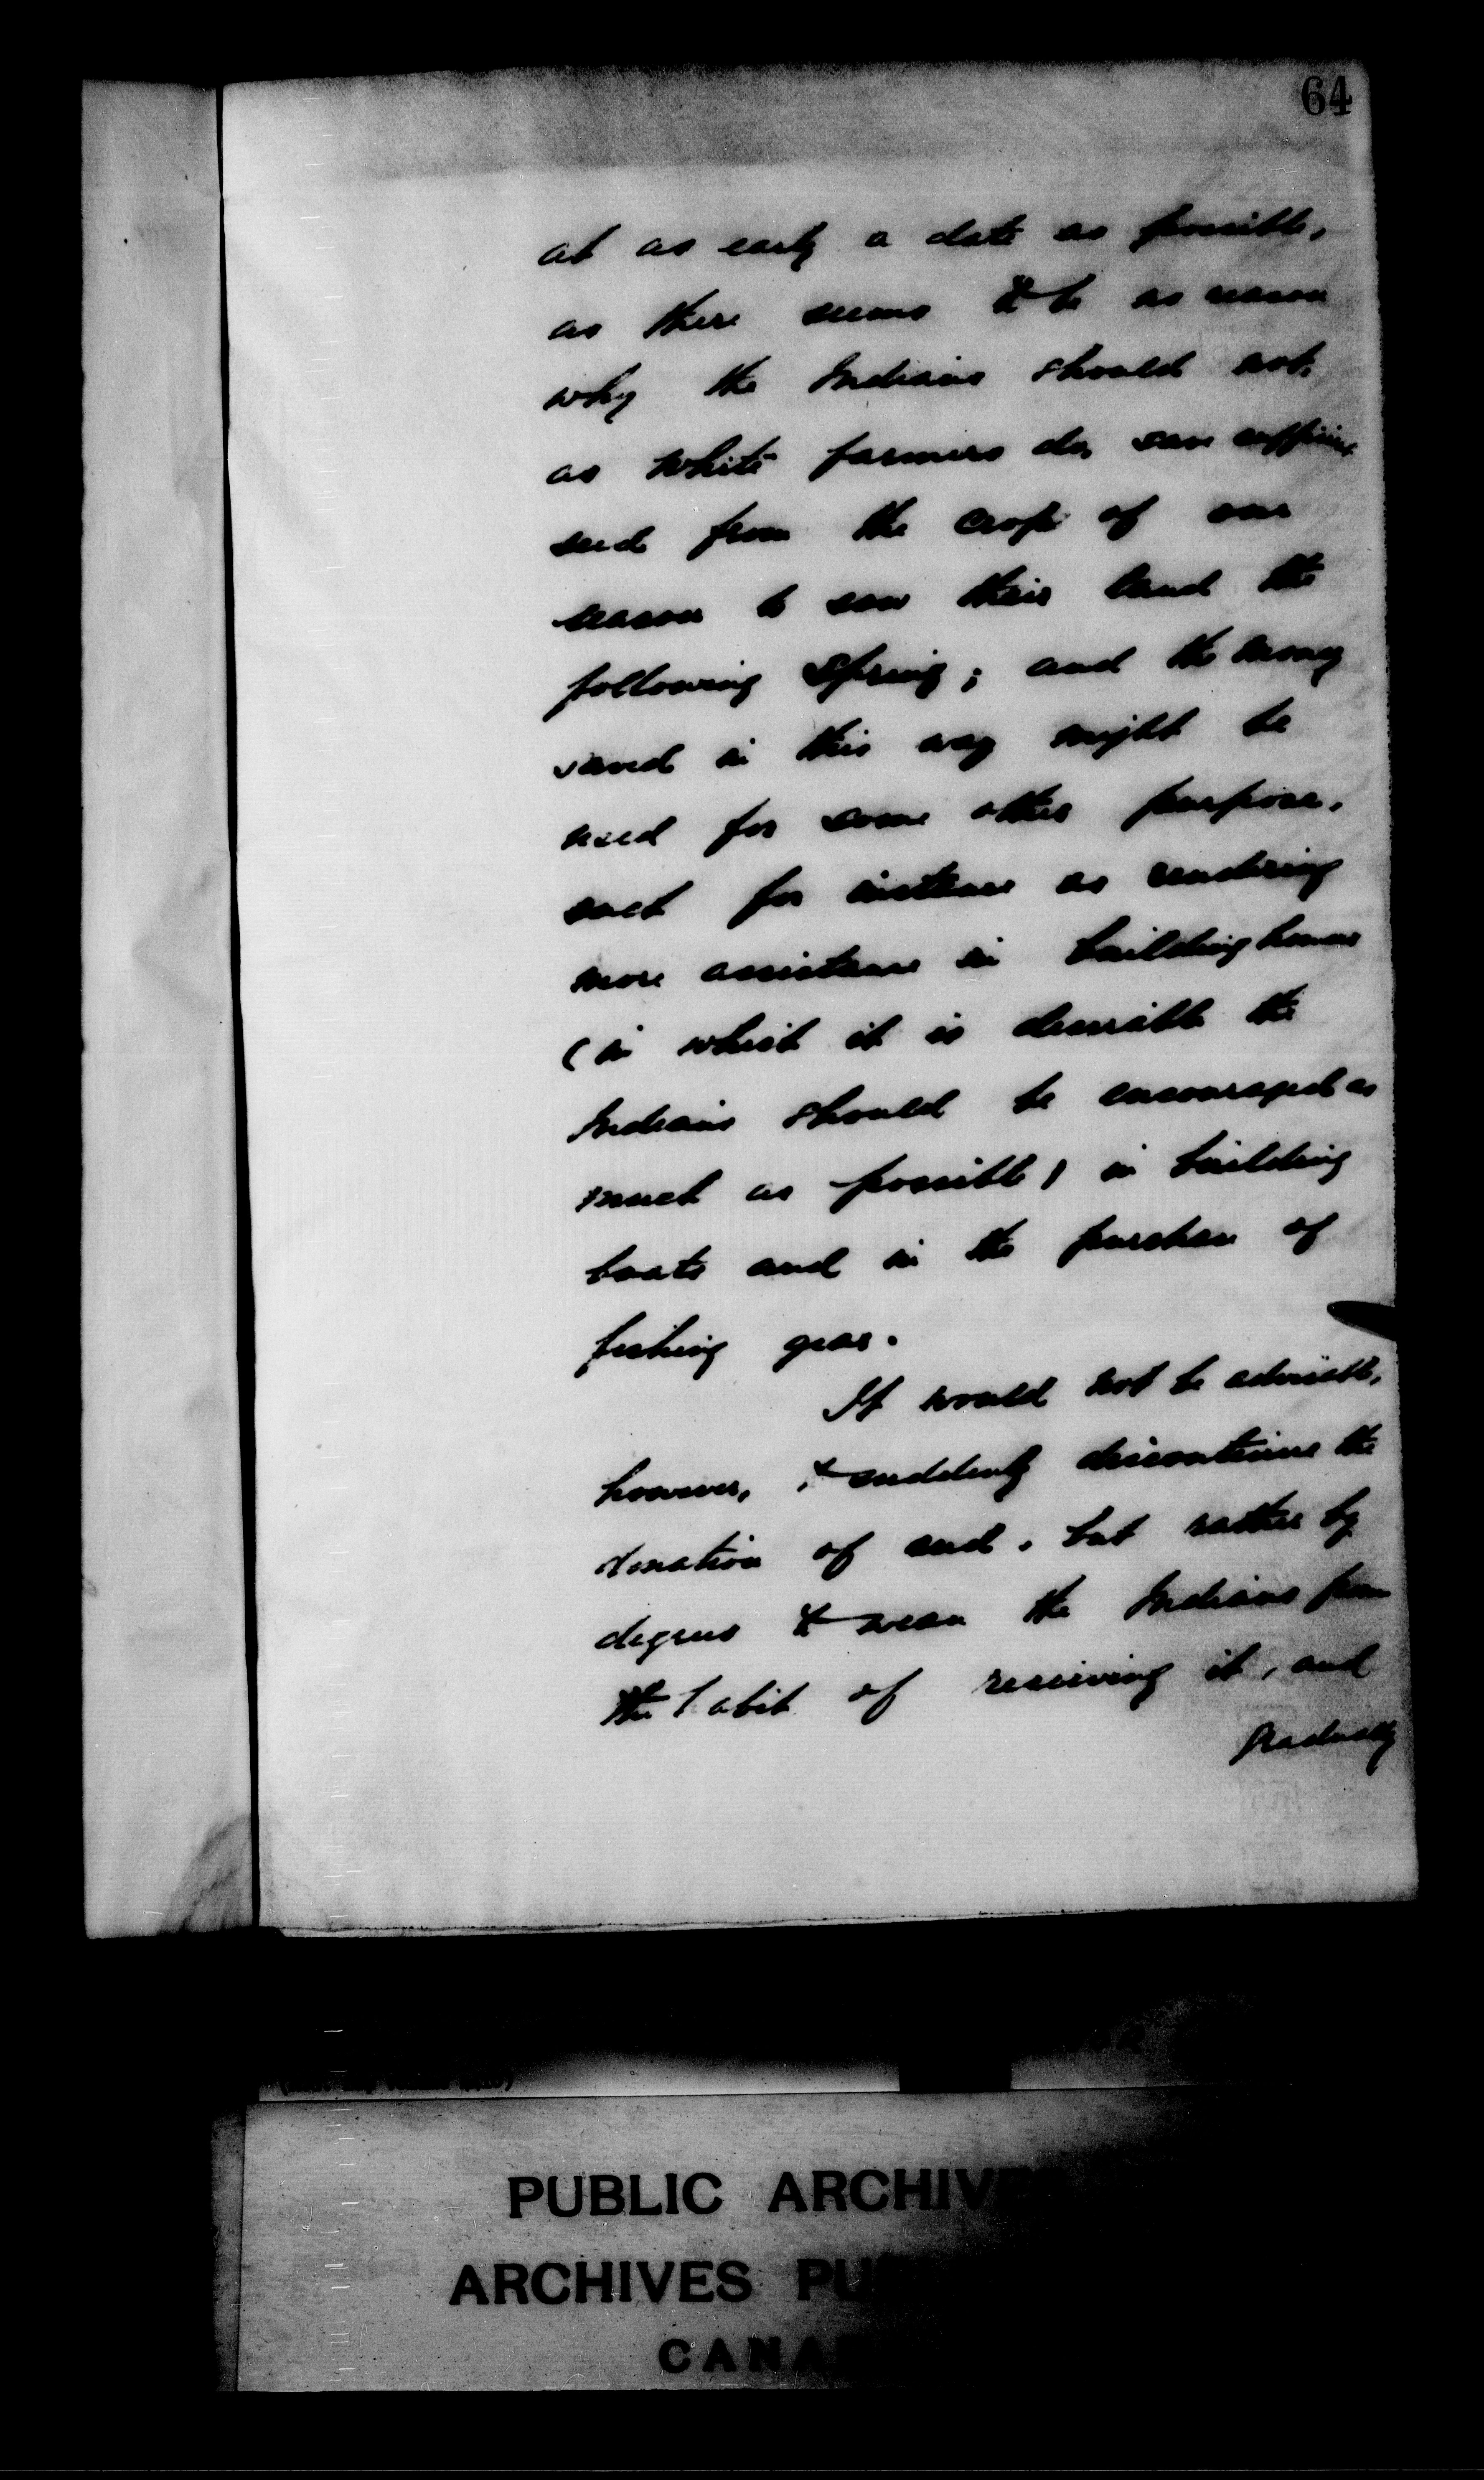 64
at as early a date as possible,
as there seems to be no reason
why the Indians should not,
as white farmers do, save sufficient
seed from the crop of one
season to sow their land the
following Spring; and the money
saved in this way might be
used for some other purpose,
such for instance as rendering
more assistance in building houses
(in which it is desirable the
Indians should be encouraged as
much as possible) in building
boats and in the purchase of
fishing gear.
It would not be advisable,
however, to suddenly discontinue the
donation of seed, but rather by
degrees to wean the Indians from
the habit of receiving it, and
gradually
PUBLIC ARCHIVES
ARCHIVES PU
CANA